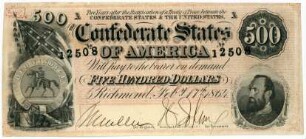 Two Years after the Ratification of a Treaty of Peace between the
CONFEDERATE STATES & THE UNITED STATES,
500 Confederate States 500
12508 OF AMERICA 12508
Will pay to the bearer on demand
FIVE HUNDRED DOLLARS
Richmond, Feb. 17th 1864